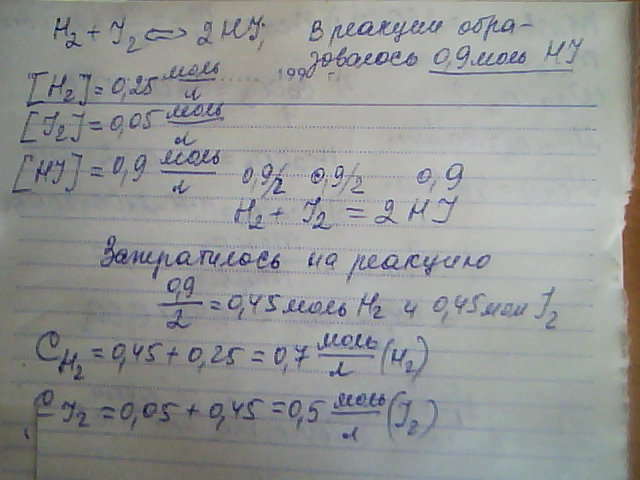 H₂ + J₂ ⇔ 2HJ; В реакции обра-
зовалось 0,9 моль HJ
[H₂] = 0,25 моль/л
[J₂] = 0,05 моль/л
[HJ] = 0,9 моль/л 0,9/2 0,9/2 0,9
H₂ + J₂ = 2HJ
Затратилось на реакцию
0,9/2 = 0,45 моль H₂ и 0,45 мол J₂
C H₂ = 0,45 + 0,25 = 0,7 моль/л (H₂)
C J₂ = 0,05 + 0,45 = 0,5 моль/л (J₂)